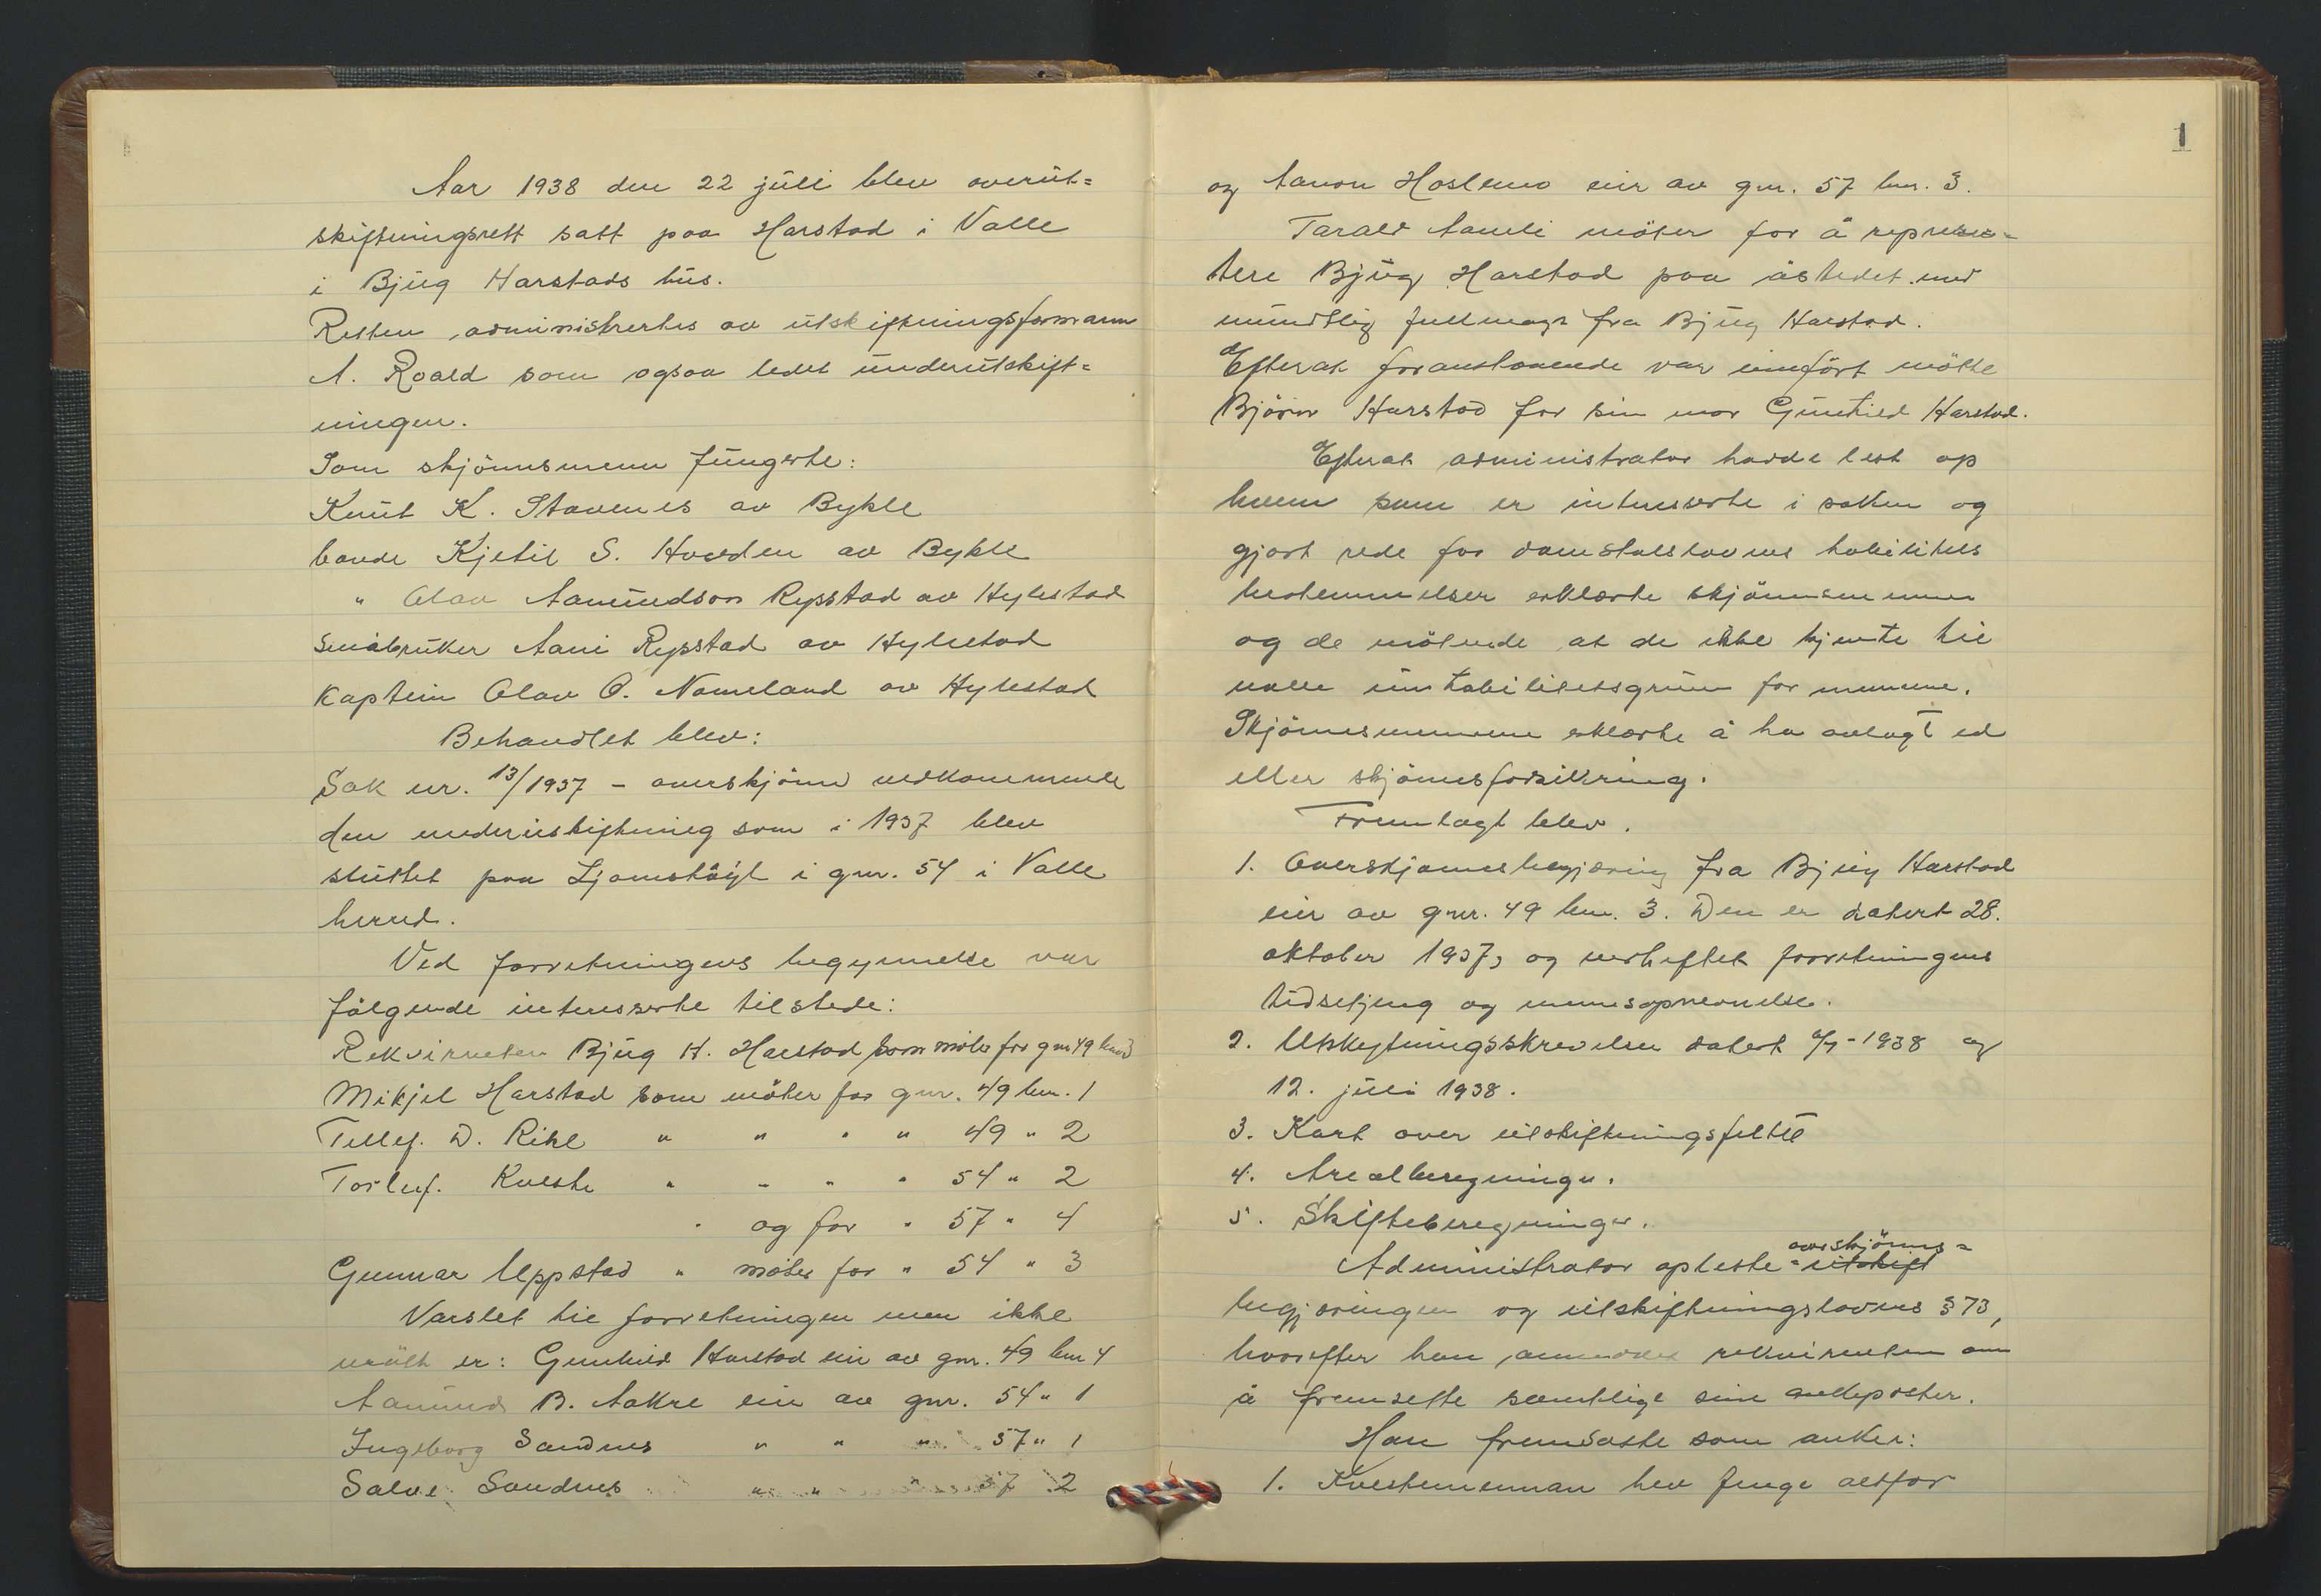 Aar 1938 den 22 juli blev overut=
skiftningsrett satt paa Harstad i Valle
i Bjug Harstads hus.
Retten administrertes av utskiftningsformann
A. Roald som ogsaa ledet underutskift=
ningen.
Som skjönnsmenn fungerte:
Knut K. Stavenes av Bykle
bonde Kjetil S. Hovden av Bykle
" Olav Aamundson Rysstad av Hylestad
Småbruker Aani Rysstad av Hylestad
Kaptein Olav O. Nomeland av Hylestad
Behandlet blev:
Sak nr. 13/1937 - overskjönn vedkommende
den underutskiftning som i 1937 blev
sluttet paa Ljomshögt i gnr. 54 i Valle
herred.
Ved forretningens begynnelse var
fölgende interesserte tilstede:
Rekvirenten Bjug H. Harstad som möter for gnr 49 bnr 3
Mikjel Harstad som möter for gnr. 49 bnr. 1
Tellef. D. Rike " " " " 49 " 2
Torleif. Kveste " " " " 54 " 2
" og for " 57 " 4
Gunnar Uppstad " möter for " 54 " 3
Varslet til forretningen men ikke
mött er: Gunhild Harstad eier av gnr. 49 bnr 4
Aamund B. Aakre eier av gnr. 54 " 1
Ingeborg Sandnes " " " 57 " 1
Salve Sandnes " " 57 2
1
og Aanon Hoslemo eier av gnr. 57 bnr. 3.
Tarald Aamli möter for å represen=
tere Bjug Harstad paa åstedet med
mundtlig fullmagt fra Bjug Harstad.
Efterat foranstaaende var innfört mötte
Björn Harstad for sin mor Gunhild Harstad.
Efterat administrator hadde lest op
hvem som er interesserte i saken og
gjort rede for domstolslovens habilitets
bestemmelser erklærte skjönnsmennene
og de mötende at de ikke kjente til
noen inhabilitetsgrunn for mennene.
Skjönnsmennene erklærte å ha avlagt ed
eller skjönnsforsikring.
Fremlagt blev.
1. Overskjönnsbegjæring fra Bjug Harstad
eier av gnr. 49 bnr. 3. Den er datert 28.
oktober 1937, og vedheftet forretningens
utskiftningsskrivelse
2. Utskiftningsskrivelser datert 1938 og
12. juli 1938.
3. Kart over utskiftningsfeltet
4. Arealberegninger.
5. Skifteberegninger.
Administrator opleste overskjönns=
begjæringen og utskiftningslovens § 73,
hvorefter han anmodet rekvirenten om
å fremsette samtlige sine ankeposter.
Han fremsatte som anker:
1. Kvestemennan hev fenge altfor